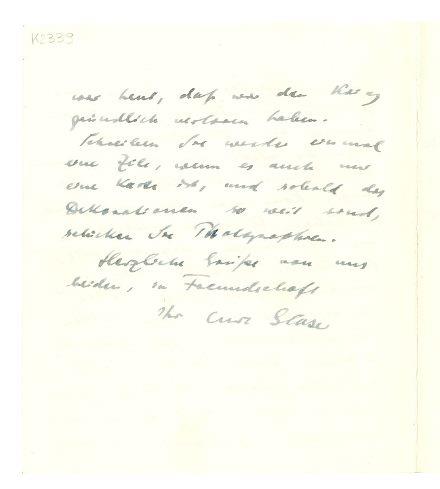 K2339
war heut, daß wir den Krieg
gründlich verloren haben.
Schreiben Sie wieder einmal
eine Zeile, wenn es auch nur
eine Karte ist, und sobald die
Dekorationen so weit sind,
schicken Sie Photographien.
Herzliche Grüße von uns
beiden, in Freundschaft
Ihr Curt